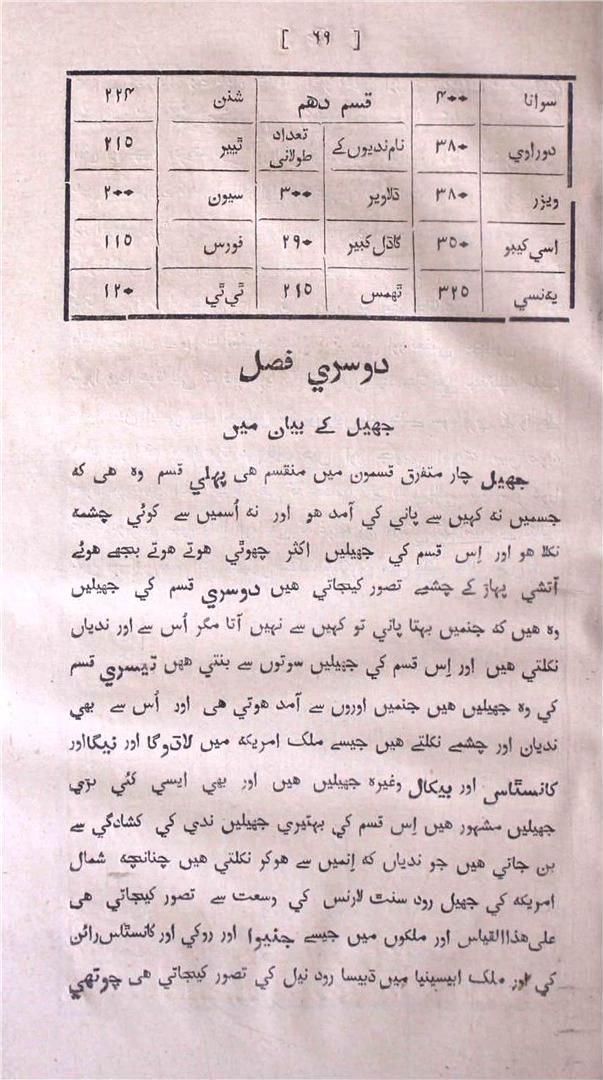 [ ۶۹ ]
سوانا ۴۰۰ قسم دهم شنن ۲۲۴
دوراوي ۳۸۰ نام ندیوں کے تعداد طولانی ٹیبر ۲۱۵
ویزر ۳۸۰ ڈلاویر ۳۰۰ سیون ۲۰۰
اسي کیبو ۳۵۰ گاڈل کبیر ۲۹۰ فورس ۱۱۵
یہنسي ۳۲۵ ٹهمس ۲۱۵ ٹي ٹي ۱۲۰
دوسري فصل
جهیل کے بیان میں
جهیل چار متفرق قسموں میں منقسم هی پہلي قسم وہ هی کہ
جسمیں نہ کہیں سے پاني کي آمد هو اور نہ اُسمیں سے کوئي چشمہ
نکلا هو اور اِس قسم کي جهیلیں اکثر چهوٹي هوتے هوتے بجهے هوئے
آتشي پہاڑ کے چشمے تصور کیجاتي هیں دوسري قسم کي جهیلیں
وہ هیں کہ جنمیں بہتا پاني تو کہیں سے نہیں آتا مگر اُس سے اور ندیاں
نکلتي هیں اور اِس قسم کي جهیلیں سوتوں سے بنتي هیں تیسري قسم
کي وہ جهیلیں هیں جنمیں اوروں سے آمد هوتي هی اور اُس سے بهي
ندیان اور چشمے نکلتے هیں جیسے ملک امریکہ میں لاڈوگا اور نیگا اور
کانسٹاسي اور بیکال وغیرہ جهیلیں هیں اور بهي ایسي کئي بڑي
جهیلیں مشہور هیں اِس قسم کي بہتیري جهیلیں ندي کي کشادگي سے
بن جاتي هیں جو ندیاں کہ اِنمیں سے هوکر نکلتي هیں چنانچہ شمال
امریکہ کي جهیل رود سنٹ لارنس کي وسعت سے تصور کیجاتي هی
علی هذا القیاس اور ملکوں میں جیسے جنیوا اور روکي اور کانسٹاس رائن
کي اور ملک ابیسینیا میں ڈبیسا رود نیل کي تصور کیجاتي هی چوتهي